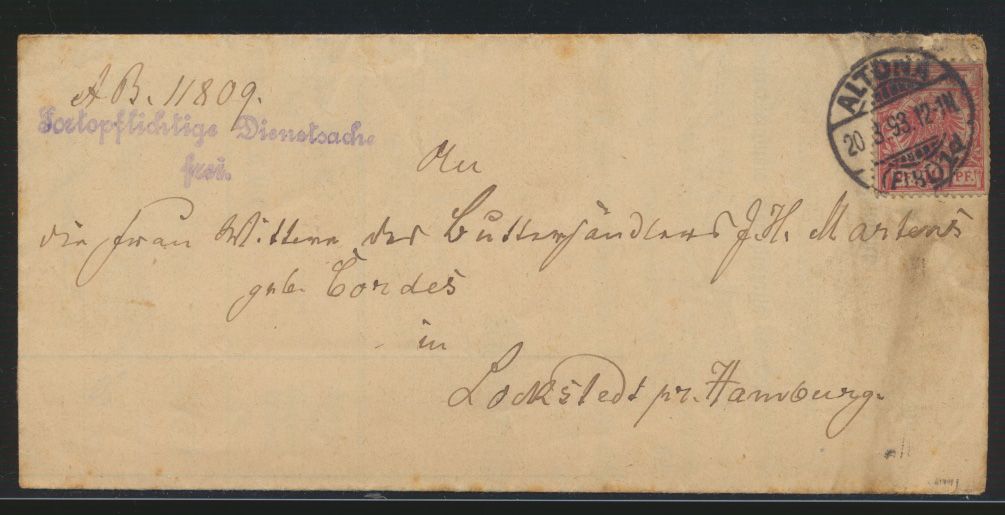 AB. 11809.
Portopflichtige Dienstsache
frei.
ALTONA
20 3.93.12-1N.
(ELBE) 1d
PF.
An
die Frau Wittwe des Butterhändlers J. H. Martens
geb. Cordes
in
Lockstedt pr. Hamburg.